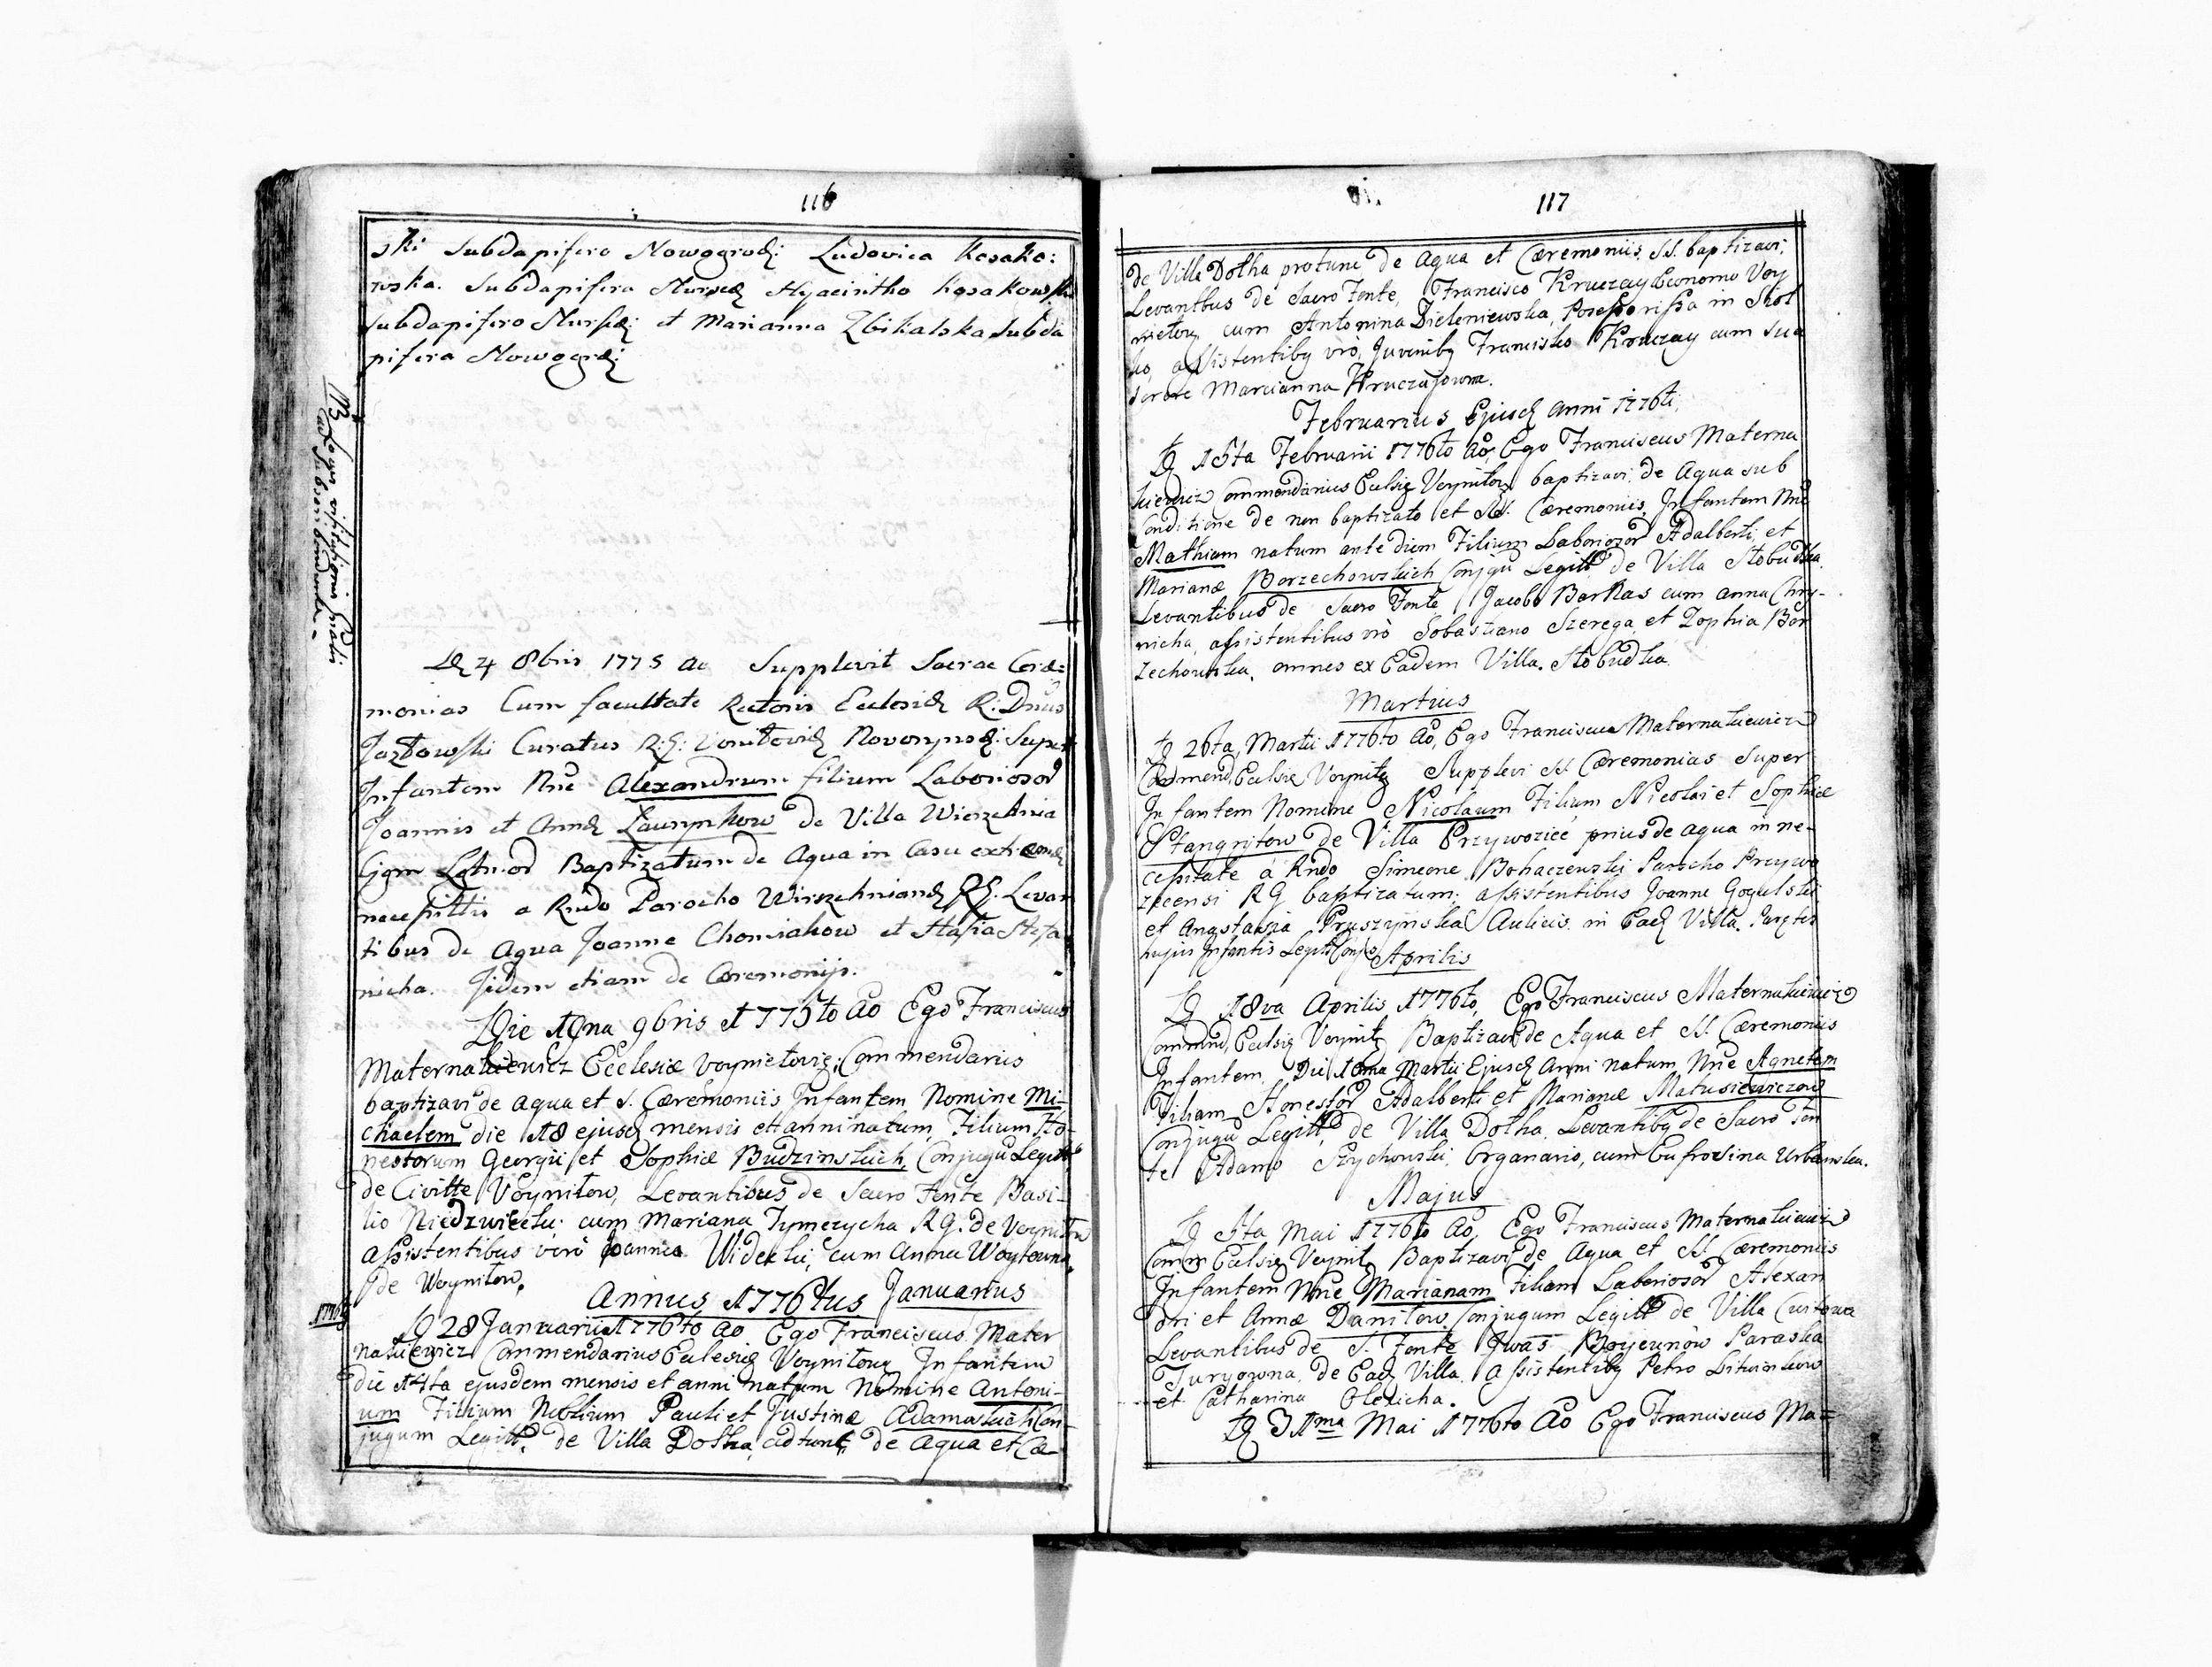 116
ski Subdapifero Nowogrod: Ludovica Kosako:
wska. Subdapifera Nurscę Hyacintho Kosakowski
Subdapifero Nurscę: et Marianna Zbikalska Subda
pifera Nowogrod:
NB Locus visitationis
ad subscribendum
Dę 4 8bris 1775 ao Supplevit Sacrae Cerae:
monias Cum facultate Rectoris Ecclesię R: Dnus
Curatus R: G:
Infantem Nne Alexandrum filium Laboriosor
Joannis et Annę de Villa
Baptizatum de Aqua in Casu extremę
necessittis a Rndo Parocho R G. Levan
tibus de Aqua Joanne Chomiakow et Stasia Stefa
nicha. Iidem etiam de Ceremonijs.
Die 19na 9bris 1775to Ao Ego Franciscus
Maternakiewicz Ecclesiæ Voynitovię: Commendarius
baptizavi de aqua et S. Cæremoniis Infantem Nomine Mi-
chaelem die 18 ejusdę mensis et anni natum, Filium Ho-
nestorum Georgii et Sophiæ Budzinskich, Conjugu Legitt
de Civitte Voynitow, Levantibus de Sacro Fonte Basi-
lio Niedzwiecki cum Mariana Tymczycha R G. de Voynitow
assistentibus verò Joannes Widecki, cum Anna Woytowna
de Woynitow.
Annus 1776tus Januarius
1776
Dę 28 Januarii 1776to ao Ego Franciscus Mater
nakiewicz Commendarius Eclesię Voynitovię Infantem
die 14ta ejusdem mensis et anni natum Nomine Antoni-
um Filium Noblium Pauli et Justinæ Adamskich Con-
jugum Legitt. de Villa Dotha, adtunc de aqua et Cæ-
117
de Villa Dotha protunc de Aqua et Cæremoniis. SS. baptizavi;
Levantbus de Sacro Fonte, Francisco Kruczay Economo Voy
nietov cum Antonina Dieleniewska, Possessorissa in Skol
ko, assistentibꝫ vrò, Juvenibꝫ Francisko Kruczay cum sua
sorore Marcianna Kruczajowna.
Februarius Ejusdę anni 1776ti
Dę 15ta Februarii 1776to Ao, Ego Franciscus Materna
kiewicz Commendarius Eclsię Voynitov baptizavi de Aqua sub
Conditione de non baptizato et SS. Cæremoniis, Infantem Nne
Mathiam natum ante diem Filium Laboriosor Adalberti, et
Marianæ Borzechowskich Conjgu Legitt de Villa Stobudka.
Levantibus de Sacro Fonte Jacobo Borkas cum Anna Chry-
nicha, assistentibus vrò Sobastiano Szerega et Zophia Bor
zechowska, omnes ex Eadem Villa. Stobudka
Martius
Dę 26ta Martii 1776to Ao, Ego Franciscus Maternakiewicz
Commend. Eclsię Voynitę Supplevi SS. Cæremonias super
Infantem Nomine Nicolaum Filium Nicolai et Sophiæ
Stangrytow de Villa Przywozice prius de aqua in ne-
cessitate à Rndo Simeone Bohaczewski Parocho Przywo
zicensi R G baptizatum; assistentibus Joanne Gogulski
et Anastazia Pruszynska Aulicis in Eadę Villa.
hujus Infantis Legitt Conj.
Aprilis
Dę 18va Aprilis 1776to, Ego Franciscus Maternakiewicz
Commend, Eclsię Voynitę Baptizavi de Aqua et SS. Cæremoniis
Infantem, Die Martii Ejusdę Anni natum, Nne Agnetem
Filiam Honestor Adalberti et Marianæ Matusiewiczow
Conjugu Legitt, de Villa Dotha. Levantibꝫ de Sacro Fon
te Adamo Szychowski, Organario, cum Eufrosina Urbanska.
Majus
Dę 5ta Mai 1776to Ao, Ego Franciscus Maternakiewicz
Comm Eclsię Voynitę Baptizavi de Aqua et SS. Cæremoniis
Infantem Nne Mariannam Filiam Laboriosor Alexan
dri et Annæ Danitow Conjugum Legitt de Villa
Levantibus de S. Fonte Iwas Paraska
Juryowna, de Eadę Villa. Assistentibꝫ Petro
et Catharina Olexicha.
Dę 31ma Mai 1776to Ao Ego Franciscus Ma=